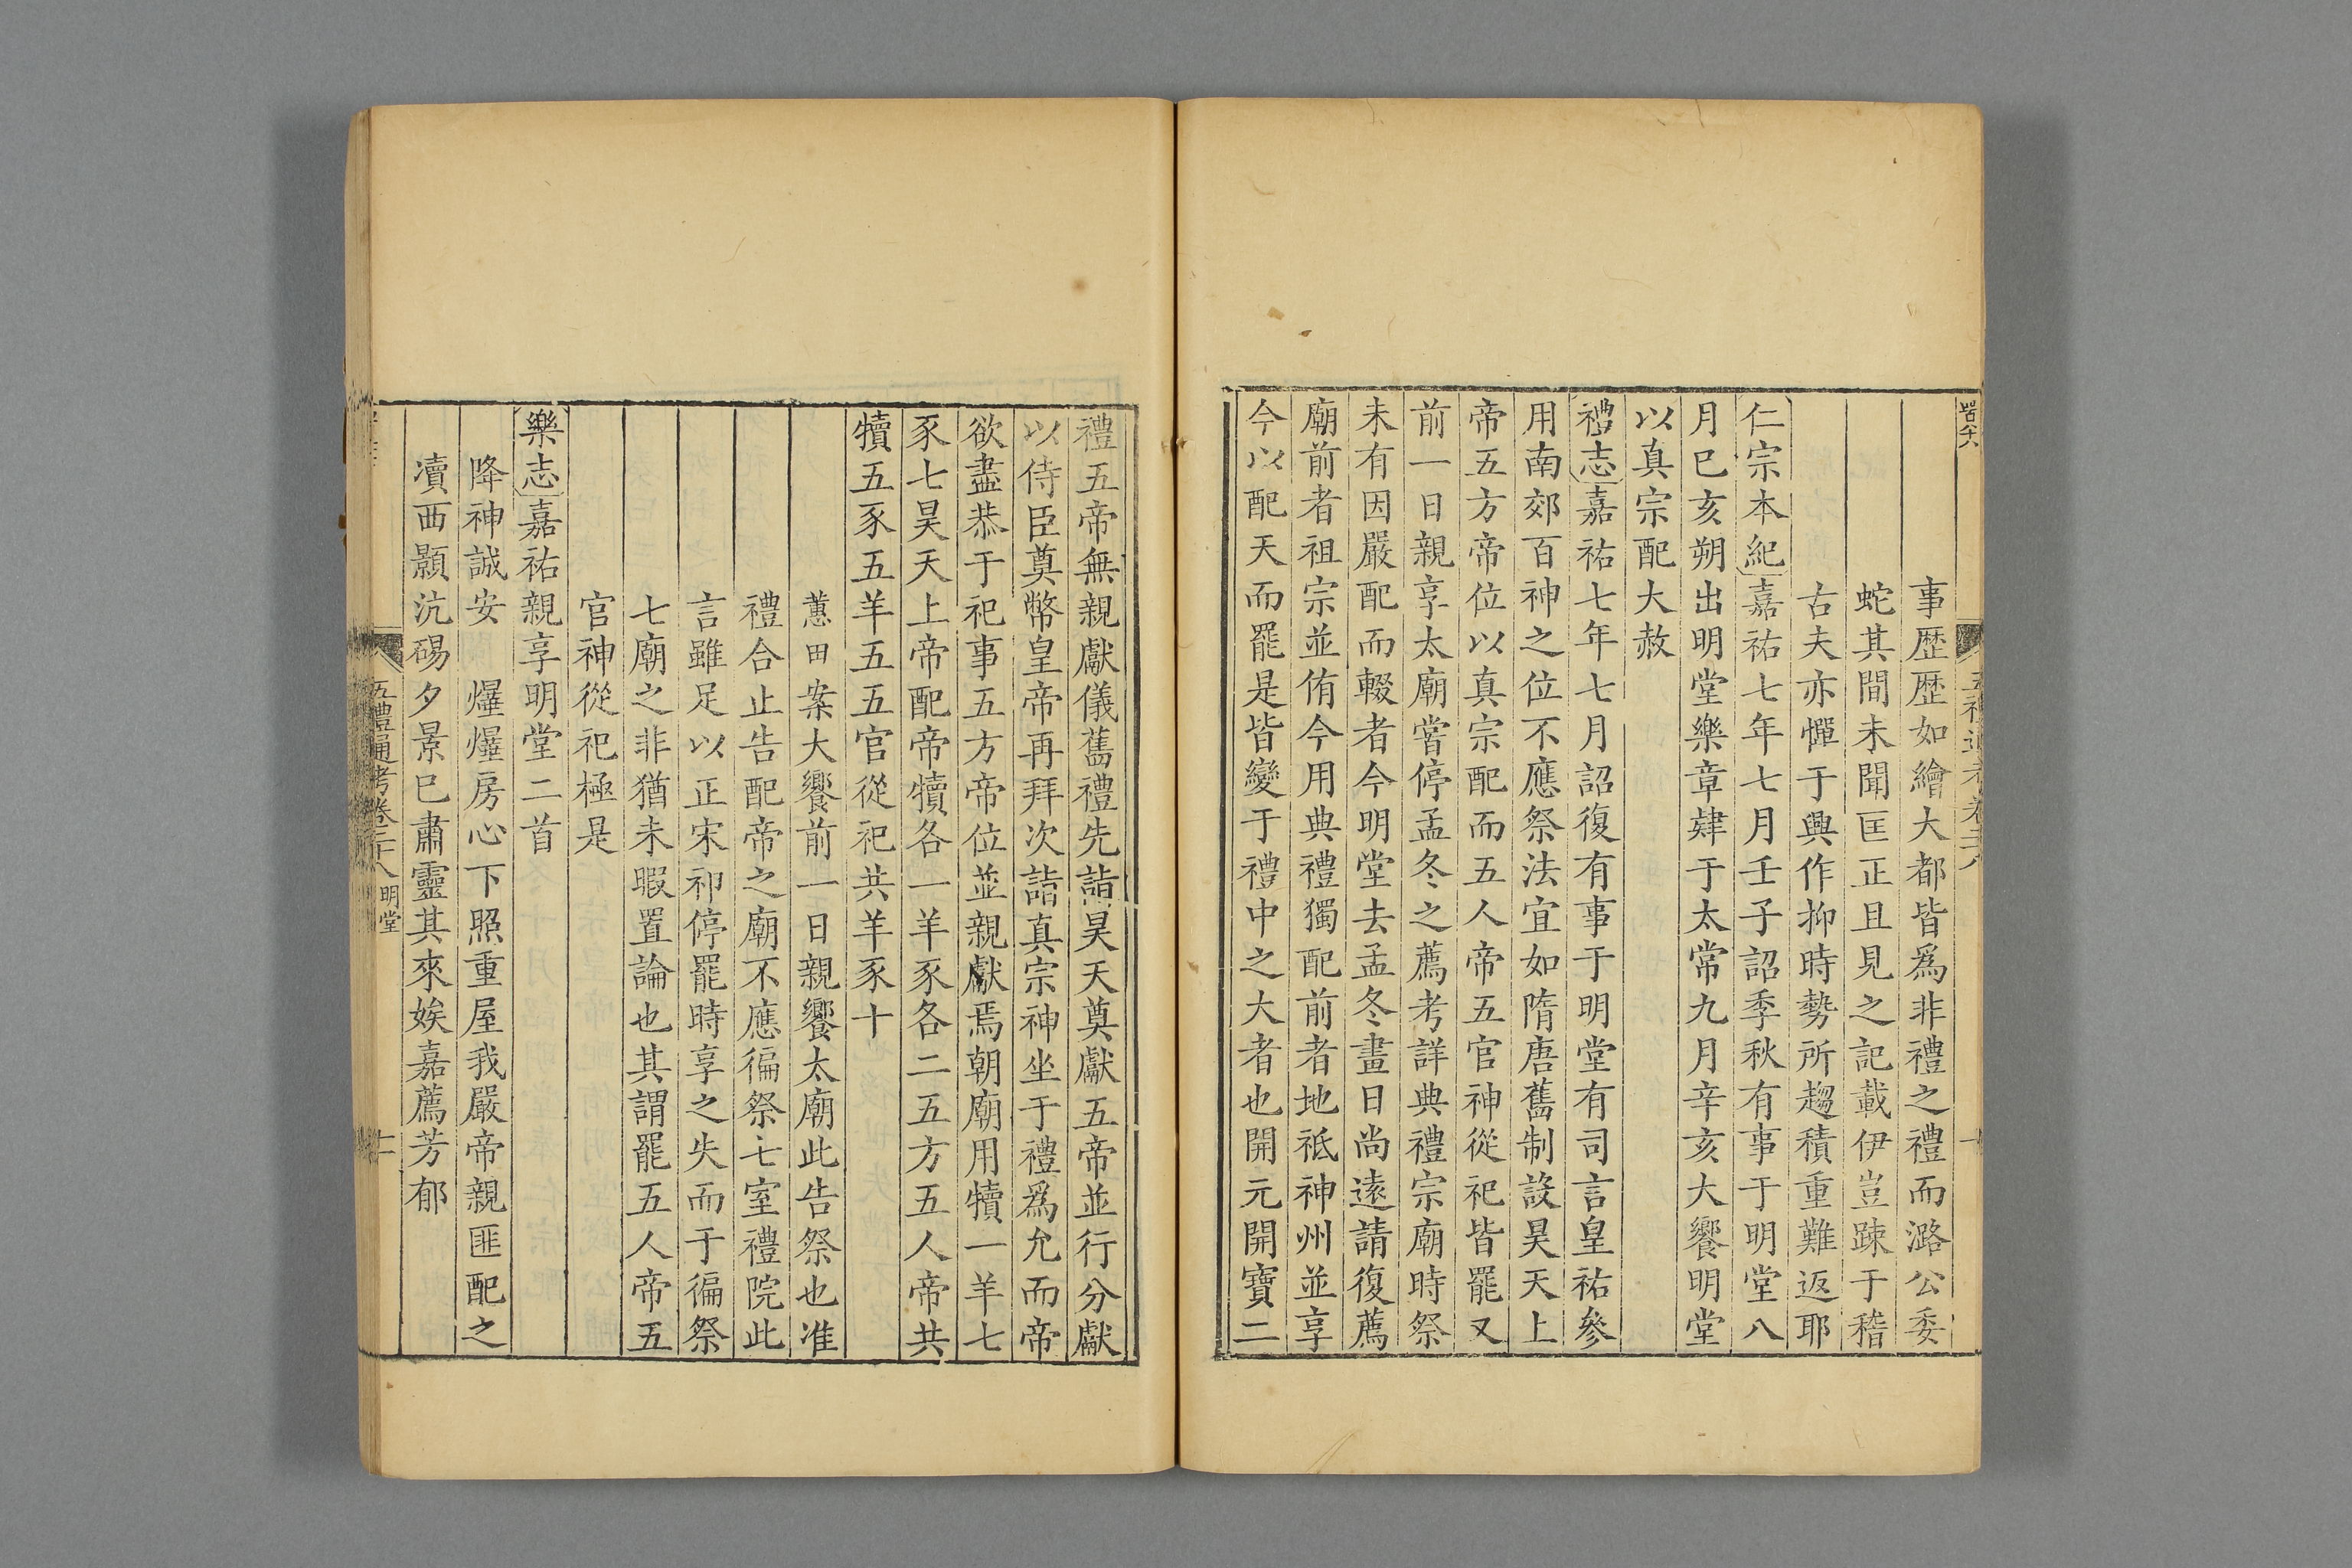 事歴歴如繪大都皆爲非禮之禮而潞公委
蛇其間未聞匡正且見之記載伊豈踈于稽
古夫亦憚于興作抑時勢所趨積重難返耶
仁宗本紀嘉祐七年七月壬子詔季秋有事于明堂八
月巳亥朔出明堂樂章肄于太常九月辛亥大饗明堂
以真宗配大赦
禮志嘉祐七年七月詔復有事于明堂有司言皇祐參
用南郊百神之位不應祭法宜如隋唐舊制設昊天上
帝五方帝位以真宗配而五人帝五官神從祀皆罷又
前一日親享太廟嘗停孟冬之薦考詳典禮宗廟時祭
未有因嚴配而輟者今明堂去孟冬畫日尚遠請復薦
廟前者祖宗並侑今用典禮獨配前者地祇神州並享
今以配天而罷是皆變于禮中之大者也開元開寶二
禮五帝無親獻儀舊禮先詣昊天奠獻五帝並行分獻
以侍臣奠幣皇帝再拜次詣真宗神坐于禮爲允而帝
欲盡恭于祀事五方帝位並親獻焉朝廟用犢一羊七
豕七昊天上帝配帝犢各一羊豕各二五方五人帝共
犢五豕五羊五五官從祀共羊豕十
蕙田案大饗前一日親饗太廟此告祭也准
禮合止告配帝之廟不應徧祭七室禮院此
言雖足以正宋祁停罷時享之失而于徧祭
七廟之非猶未暇置論也其謂罷五人帝五
官神從祀極是
樂志嘉祐親享明堂二首
降神誠安 爗爗房心下照重屋我嚴帝親匪配之
凟西顥沆碭夕景巳肅靈其來娭嘉薦芳郁
五禮通考卷二十八 明堂 十一